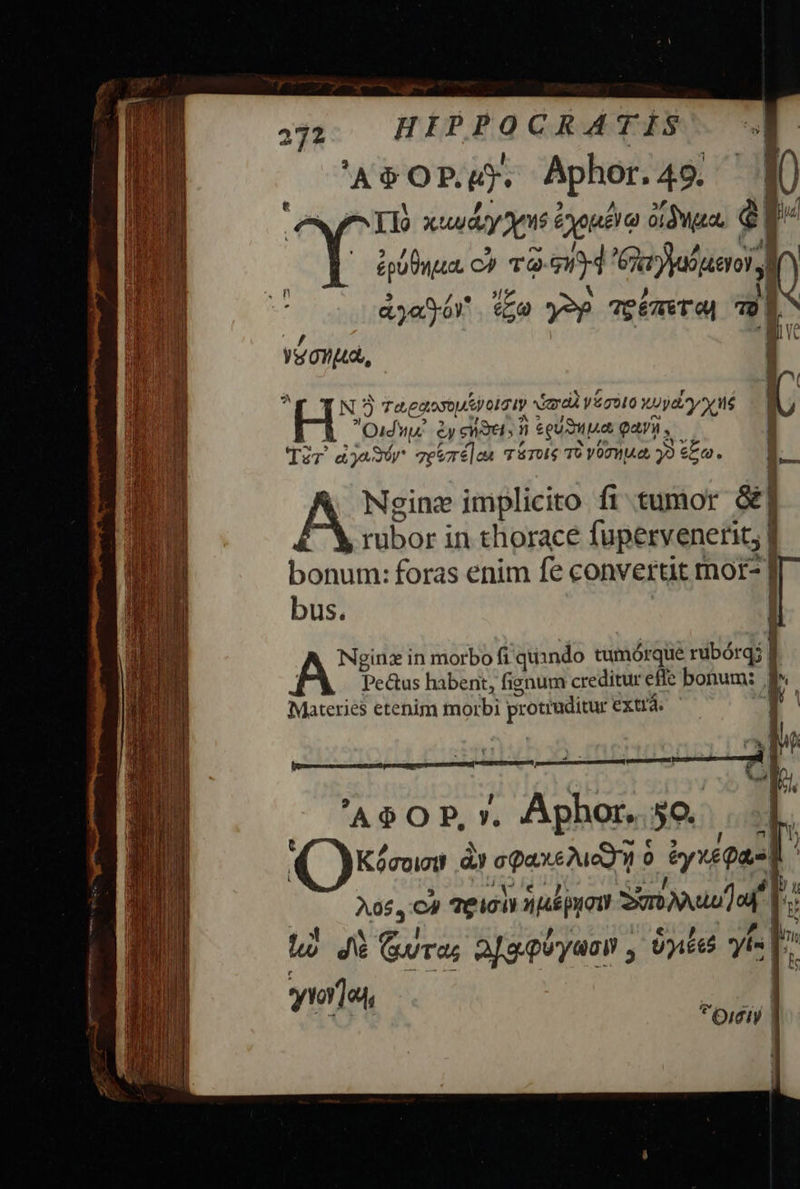 272 HIPPOCRATIS
ἈΦΟΡ. μθ. Aphor. 49.
Ὑπὸ κυνάγχης ἐχομένῳ οἴδημα, ἢ
ἐρύθημα ἐν τῷ στήθει ἐπιγενόμενον,
ἀγαθόν· ἔξω γὰρ τρέπεται τὸ
νόσημα.
ἪΝ δὲ ταρασσομένοισιν ὑπαὶ νόσοιο κυνάγχης
Οἴδημ' ἐν στήθει, ἢ ἐρύθημα φανῇ,
Τοῦτ' ἀγαθόν· τρέπεται τούτοις τὸ νόσημα γὰρ ἔξω.
ANginæ implicito ſi tumor &
rubor in thorace ſupervenerit,
bonum: foras enim ſe convertit mor-
bus.
ANginæ in morbo ſi quando tumórque rubórq;
Pectus habent, ſignum creditur eſſe bonum:
Materies etenim morbi protruditur extrá.
ἈΦΟΡ, ν. Aphor. 50.
ὉΚόσοισιν ἂν σφακελισθῇ ὁ ἐγκέφα-
λος, ἐν τρισὶν ἡμέρῃσιν ἀπόλλυνται
ἢν δὲ ταύτας διαφύγωσιν, ὑγιέες γί-
γνονται,
Οἷσιν